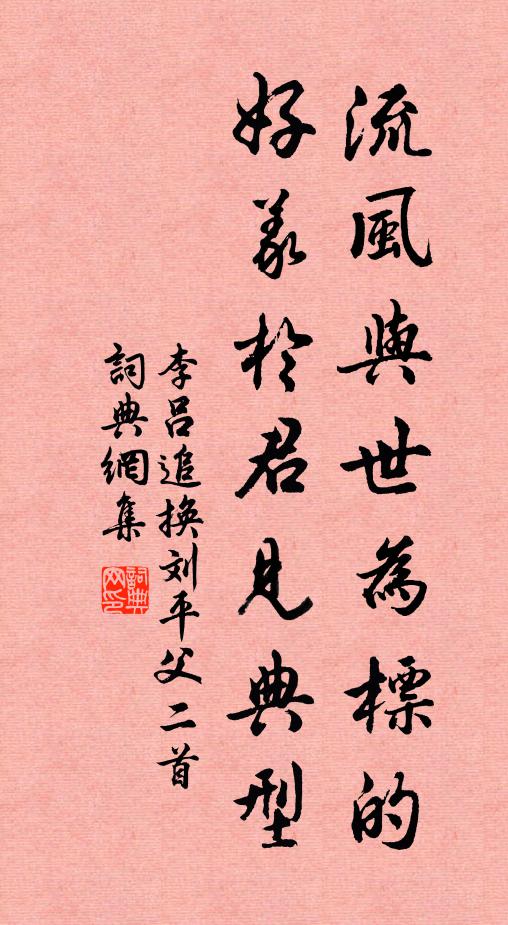 流風與世為標的
好義於君見典型
李呂追換刘平父二首
詞典網集
詞典网印